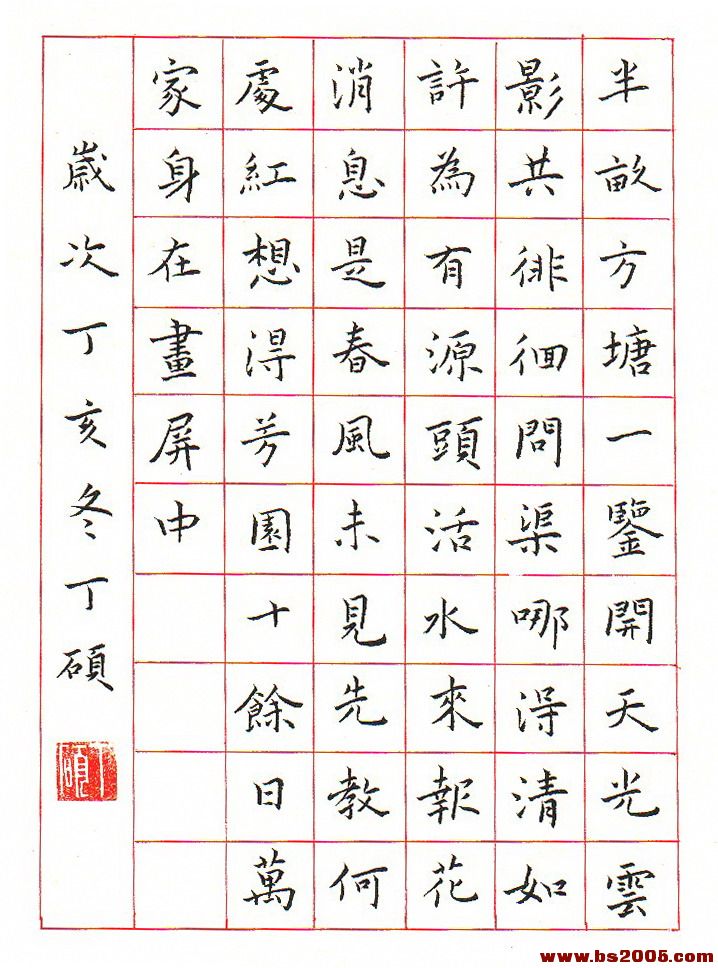 半畝方塘一鑒開天光雲
影共徘徊問渠哪得清如
許為有源頭活水來報花
消息是春風未見先教何
處紅想得芳園十餘日萬
家身在畫屏中
歲次丁亥冬丁碩
丁碩
www.bs2005.com